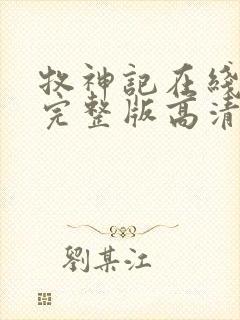 牧神記在綫
完整版高清
劉某江